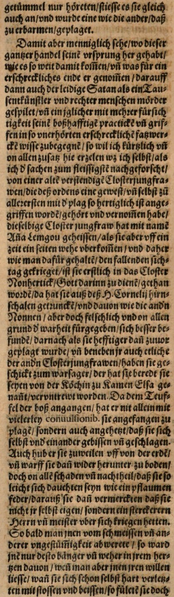 getümmel nur höreten/stiesse es sie gleich
auch an/vnd wurde eine wie die ander/daß
zu erbarmen/geplaget.
Damit aber menniglich sehe/wo dieser
gantzer handel seine vrsprung her gehabt/
wie es so weit damit kom̃en/vñ was für ein
erschreckliches ende er genom̃en/darauff
dann auch der leidige Satan als ein Tau-
senkünstler vnd rechter menschen mörder
gespilet/vñ einiglicher mit mehrer fürsich-
tigkeit seine boßhafftige practickē vñ grif-
fen in so vnerhörten erschreckliche
wisse zubegegnē/so wil ich fürtzlich vñ
von allen zusatz hie erzelen wz ich selbst/als
ich d sachen zum fleissigst nachgeforscht/
von einer alte verstendige Closterjungfra-
wen/die deß ordens eine gewest/vñ selbst zū
allerersten mit d plag so hertzlich ist ange-
griffen wordē/gehört vnd vernom̃en habe/
dieselbige Closter jungfraw hat mit namē
Ana Lemgou geheissen/als sie aber vff ein
zeit ein seiten wehe vberkom̃en/vnd daher
wie man dafür gehaltē/den fallenden sich-
tag gekrieget/ist sie erstlich in das Closter
Nonherrick/Gott darinn zu dienē/gethan
wordē/da hat sie auß deß H. Cornelij hirn-
schalen getrunckē/vnd dauon wie die andn
Nonnen/aber doch felschlich vnd on allen
grund d warheit fürgeben/sich besser be-
fundē/darnach als sie hefftiger dañ zuuor
geplagt wurde/vñ benebenjr auch etliche
der andn Closterjungfrawen/haben sie ge-
schickt zum warsager/der hat sie beredt sie
seyen von der Köchin zu Kamen Elsa ge-
nañt/vervntrewt worden. Da dem Teuf-
fel der boß angangen/hat er nit allein mit
vielerley conuulsionib. sie angefangen zu
plagē/sondern auch angehetzt/daß sie sich
selbst vnd einander gebissen vñ geschlagen.
Auch hub er sie zuweilen vff von der erdē/
vñ warff sie dañ wider herunter zu boden/
doch on alle schaden vñ nachtheil/daß sie so
leicht sich dauchten seyn wie ein pflaumen
feder/darauß sie dañ vermerckten daß sie
nicht jr selbst eigen/sondern ein sterckerern
Herrn vñ meister vber sich kriegen hetten.
So bald man jnen vom schmeissen vñ an-
derer vngestümigkeit abwerete/so ward
jnē nur desto bänger vñ weher in jrem her-
tzen dauon/wañ man aber jnen jren willen
liesse/wañ sie sich schon selbst hart verletz-
ten mit stossen vnd beissen/so fülete sie doch